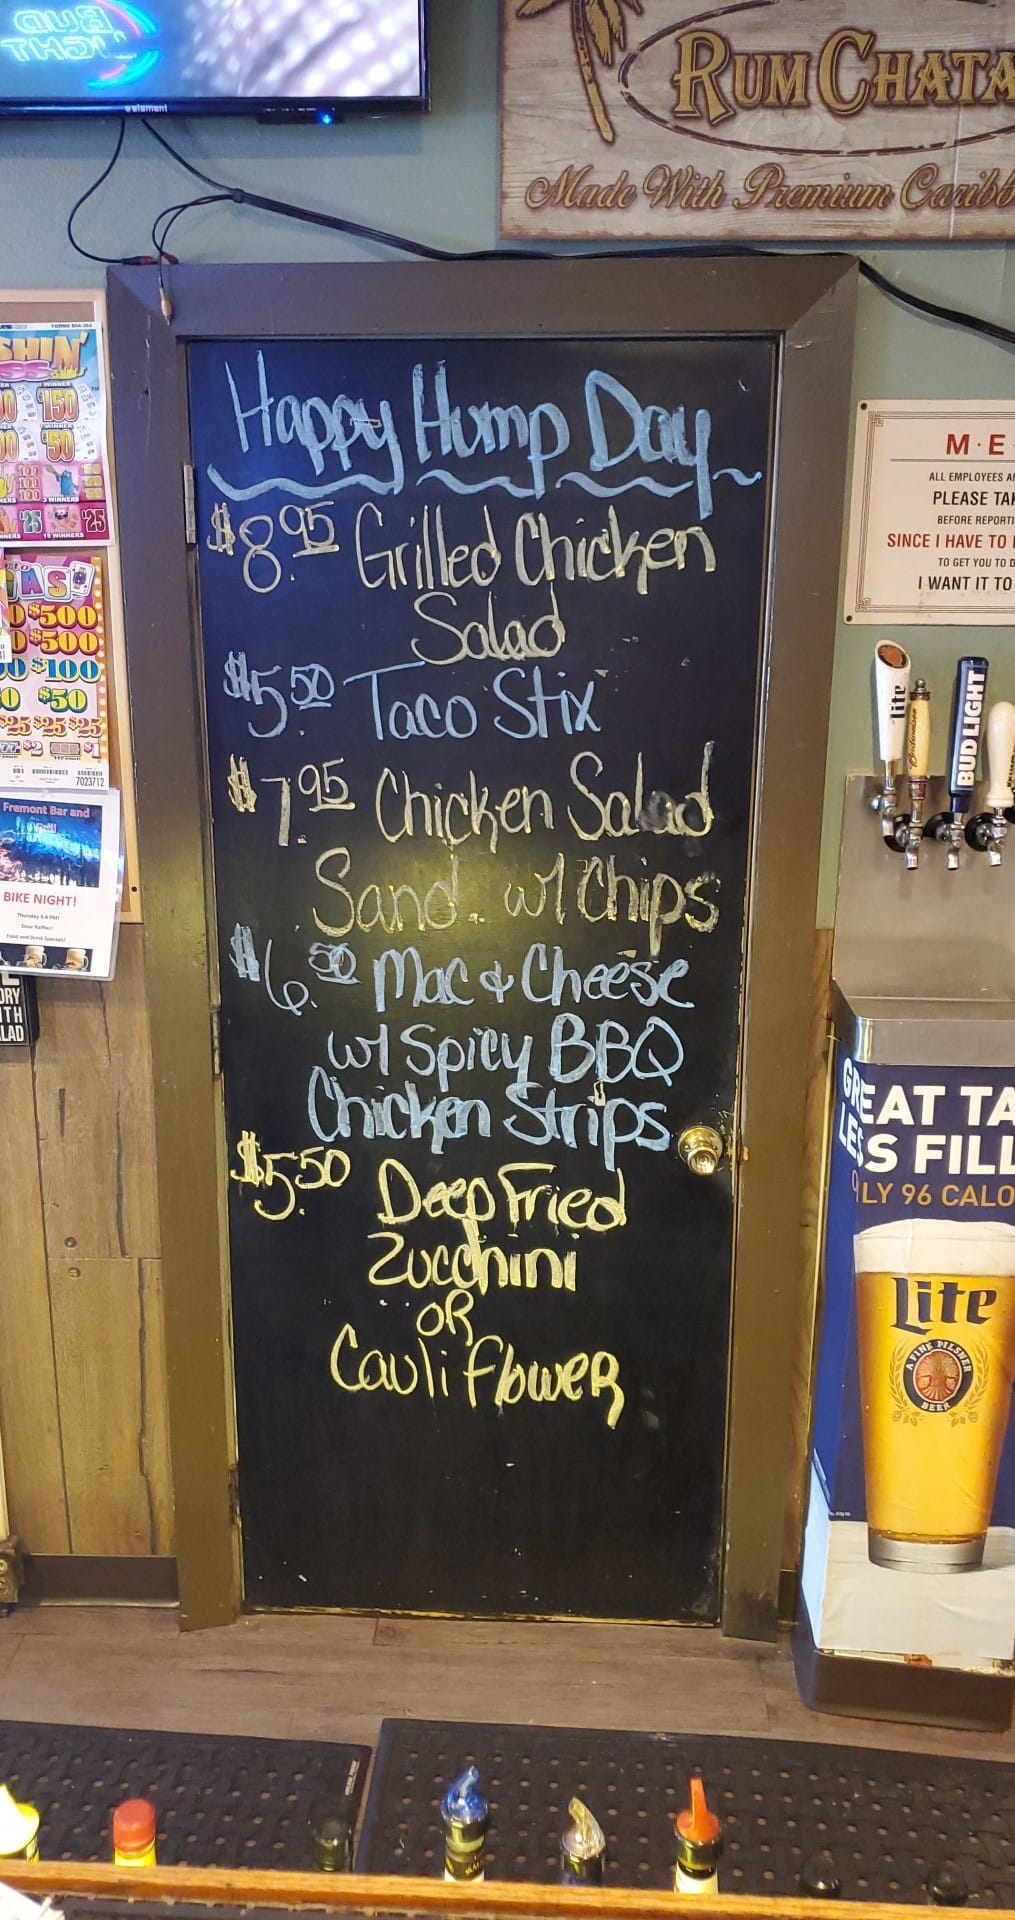 BUD
LIGHT
element
RUMCHATA
Made With Premium Caribb
Happy Hump Day
$8.95 Grilled Chicken
Salad
$5.50 Taco Stix
$7.95 Chicken Salad
Sand. w/ Chips
$6.50 Mac & Cheese
w/ Spicy BBQ
Chicken Strips
$5.50 Deep Fried
Zucchini
OR
Cauliflower
SHIN'
$150
$50
$25
$25
$500
$500
$100
$50
$25 $25 $25
$2
$1
7023712
Fremont Bar and
BIKE NIGHT!
Thursday 5-8 PM!
Door Raffles!
Food and Drink Specials!
M·E
ALL EMPLOYEES
PLEASE TAK
BEFORE REPORTI
SINCE I HAVE TO
TO GET YOU TO D
I WANT IT TO
Lite
Budweiser
BUD LIGHT
GREAT TA
LESS FILL
LY 96 CALO
Lite
A FINE PILSNER
BEER